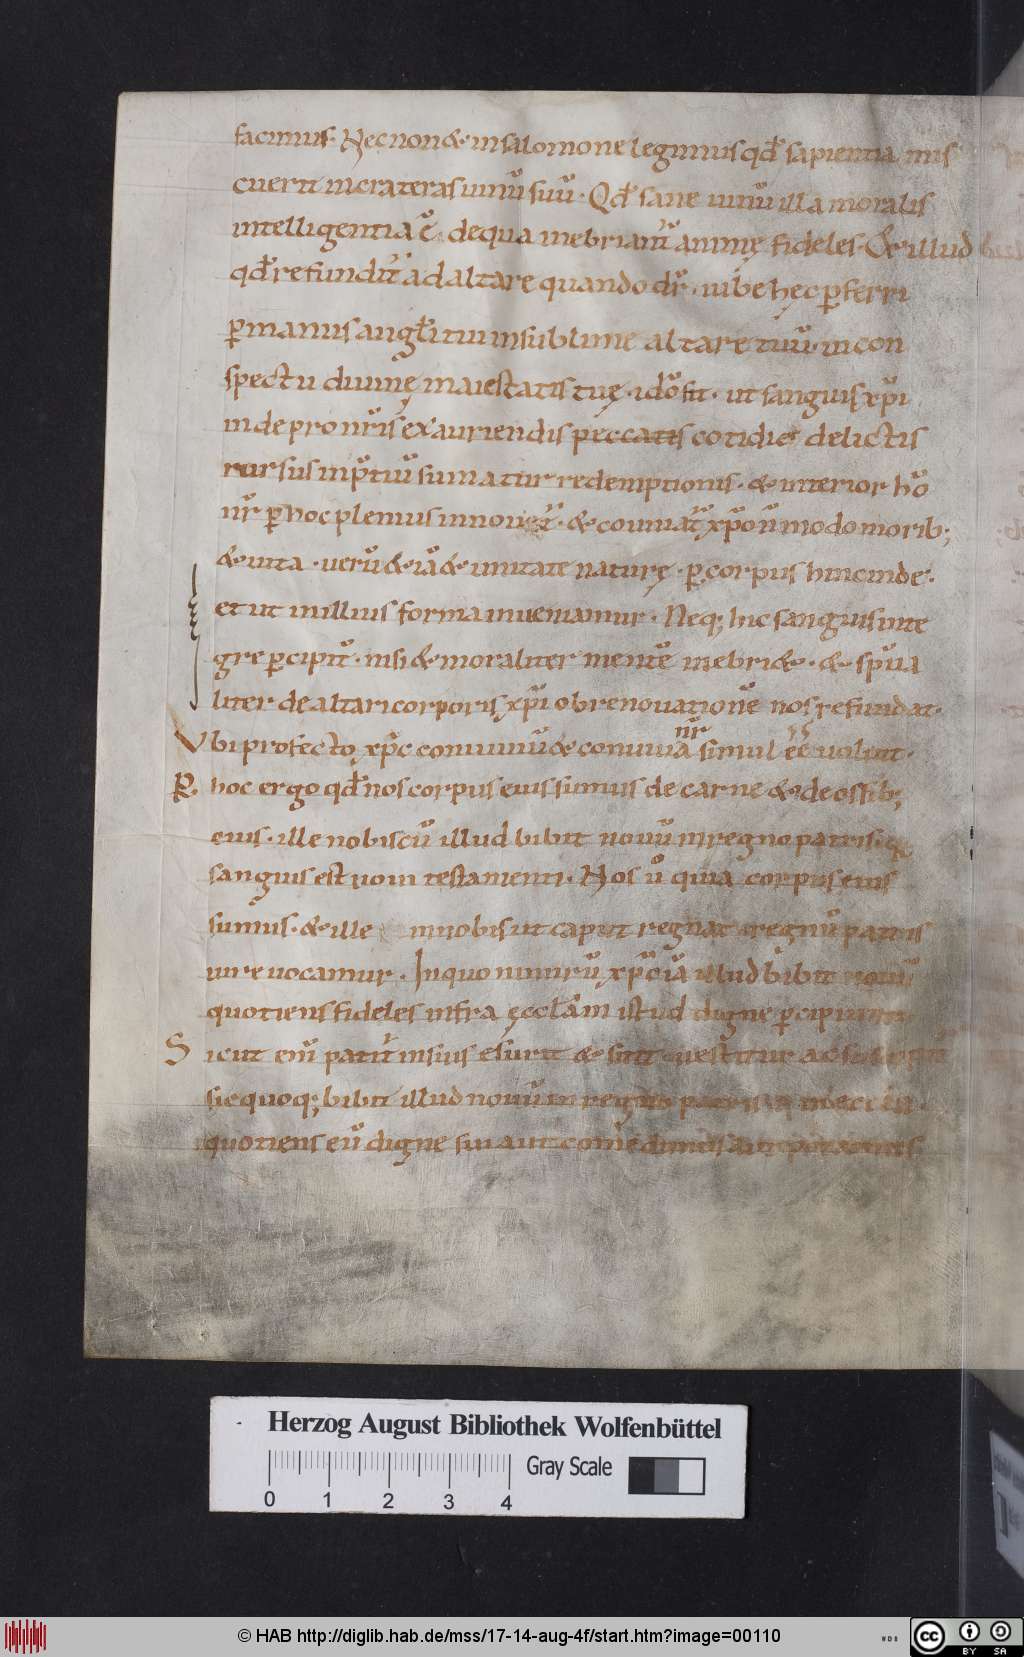 facimus. Nec non & in salomone legimus qđ sapientia mis
cuerit incrateras uinū suū. Qđ sane uinū illa moralis
intelligentia ē. dequa inebriant̄ animę fideles. & illud
qđ refundit̄ ad altare quando dr̄. iube hęc ꝑferri
ꝑmanus angłi tui insublime altare tuū. incon
spectu diuinę maiestatis tuę. idō fit. ut sanguis xp̄i
inde pro nr̄is exauriendis peccatis cotidie delictis
rursus inp̄tiū sumatur redemptionis. & interior hō
nr̄ ꝑhoc plenius innouet̄. & conuiuat̄ xp̄o ñ modo morib;
& uita. uerū & iā & unitate naturę. ꝑ corpus hincinde.
et ut in illius forma inueniamur. Neq; hic sanguis inte
gre ꝑcipit̄. nisi & moraliter mentē inebri&. & sp̄ua
liter de altari corporis xp̄i ob renouationē nos refundat.
Vbi profecto xp̄c conuiuiū & conuiua nr̄ simul eē uoluit.
Ꝑ. hoc ergo qđ nos corpus eius sumus de carne & de ossib;
eius. ille nobiscū illud bibit nouū inregno patris.
sanguis est noui testamenti. Nos ū quia corpus eius
sumus. & ille innobis ut caput regnat regnū patris
iure uocamur. Inquo nimirū xp̄c iā illud bibit nouū
quotiens fideles infra ęccłam istud digne ꝑcipiunt
Sicut enī patit̄ insuis esurit & sitit uestitur ac
sic quoq; bibit illud nouū in regno patris
quotiens eū digne sui aut comedimus aut potamus
Herzog August Bibliothek Wolfenbüttel
Gray Scale
0 1 2 3 4
© HAB http://diglib.hab.de/mss/17-14-aug-4f/start.htm?image=00110
WDB
cc BY SA